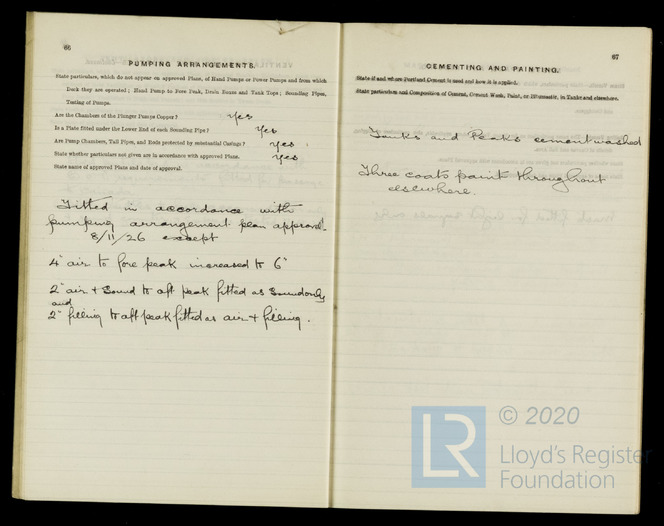 66
PUMPING ARRANGEMENTS.
State particulars, which do not appear on approved Plans, of Hand Pumps or Power Pumps and from which
Deck they are operated; Hand Pump to Fore Peak, Drain Hauses and Tank Tops; Sounding Pipes,
Testing of Pumps.
Are the Chambers of the Plunger Pumps Copper? Yes
Is a Plate fitted under the Lower End of each Sounding Pipe? Yes
Are Pump Chambers, Tail Pipes, and Rods protected by substantial Casings? Yes
State whether particulars not given are in accordance with approved Plans. Yes
State name of approved Plans and date of approval.
Fitted in accordance with
pumping arrangement plan approved
8/11/26 except
4" air to fore peak increased to 6"
2" air & sound to aft peak fitted as sound only
and
2" filling to aft peak fitted as air & filling.
67
CEMENTING AND PAINTING.
State if and where Portland Cement is used and how it is applied.
State particulars and Composition of Cement, Cement Wash, Paint, or Bitumastic, in Tanks and elsewhere.
Tanks and Peaks cementwashed
Three coats paint throughout
elsewhere.
LR
© 2020
Lloyd's Register
Foundation